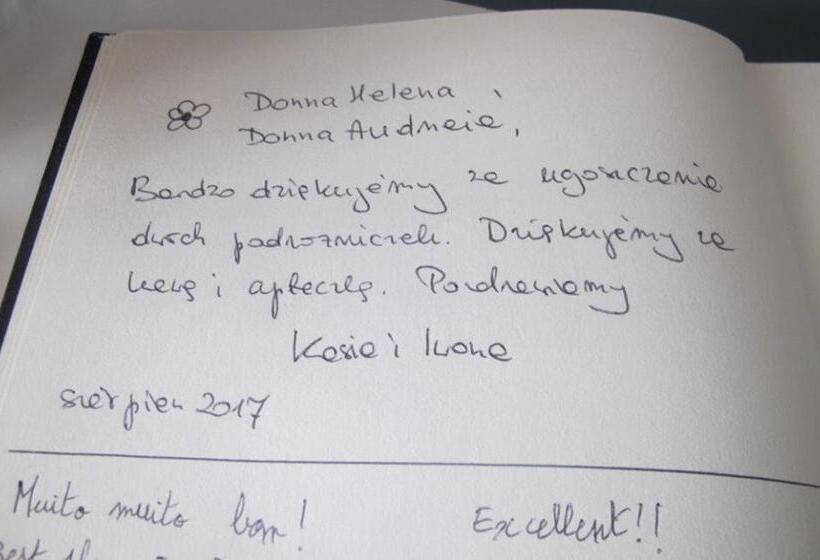 Donna Helena,
Donna Audneia,
Bardzo dziękujemy za ugoszczenie
dwóch podrózniczek. Dziękujemy za
kawę i apteczkę. Pozdrawiamy
Kasia i Iwona
sierpień 2017
Muito muito bom! Excellent!!
Best